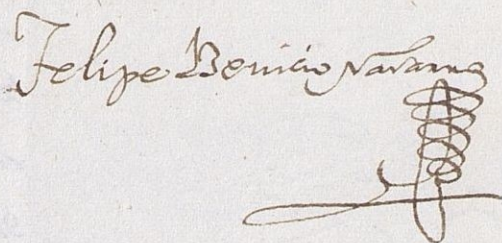 Felipe Benicio Navarro